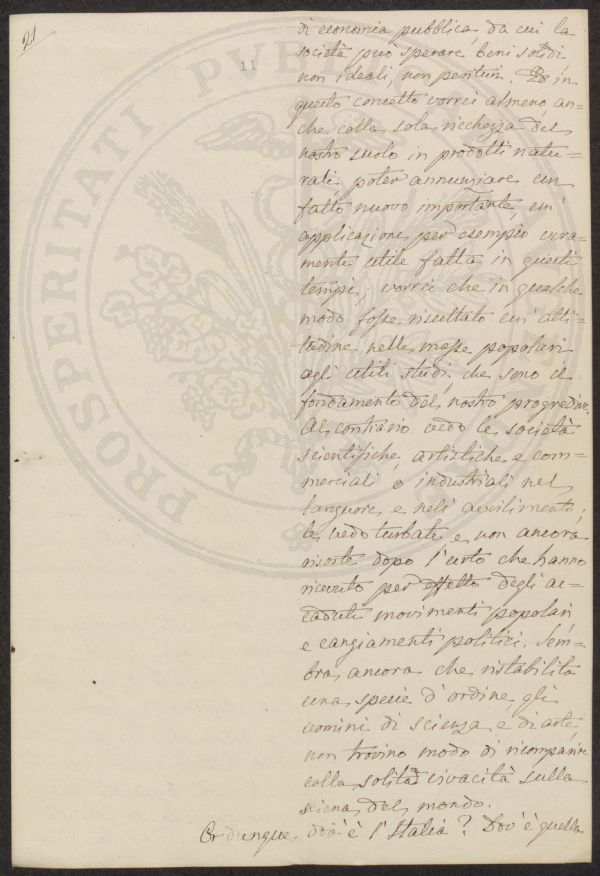 21
11
PROSPERITATI PVB
di economia pubblica, da cui la
società può sperare beni solidi,
non ideali, non perituri. Io in
questo concetto vorrei almeno an=
che colla sola ricchezza del
nostro suolo in prodotti natu=
rali poter annunziare un
fatto nuovo importante, un'
applicazione per esempio vera=
mente utile fatta in questi
tempi; vorrei che in qualche
modo fosse risultato un'atti=
tudine nelle masse popolari
agli utili studi, che sono il
fondamento del nostro progredire.
Al contrario vedo le società
scientifiche, artistiche e com=
merciali e industriali nel
languore e nell'avvilimento;
le vedo turbate e non ancora
risorte dopo l'urto che hanno
ricevuto per effetto degli ac=
caduti movimenti popolari
e cangiamenti politici. Sem=
bra ancora che ristabilita
una specie d'ordine gli
uomini di scienza e di arte
non trovino modo di ricomparire
colla solita vivacità sulla
sciena del mondo.
Or dunque dov'è l'Italia? Dov'è quella